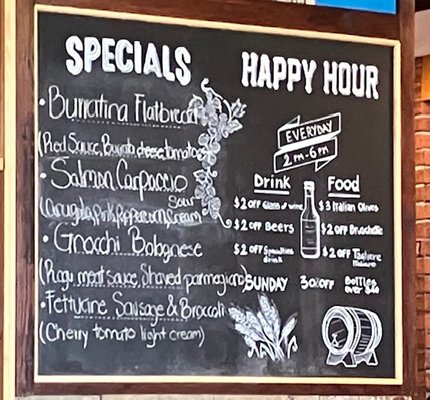 SPECIALS
• Burratina Flatbread
(Red Sauce, Burrata cheese, tomatoes
• Salmon Carpaccio
(Arugula, Pink Peppercorn, Sour Cream
• Gnocchi Bolognese
(Ragu meat sauce, Shaved parmegiano)
• Fettucine Sausage & Broccoli
(Cherry tomato light cream)
HAPPY HOUR
EVERYDAY
2 m-6m
Drink
$2 OFF Glass of wine
$2 OFF Beers
$2 OFF Specialties drinks
Food
$3 Italian Olives
$2 OFF Bruschette
$2 OFF Tagliere
SUNDAY 30% OFF Bottles
over